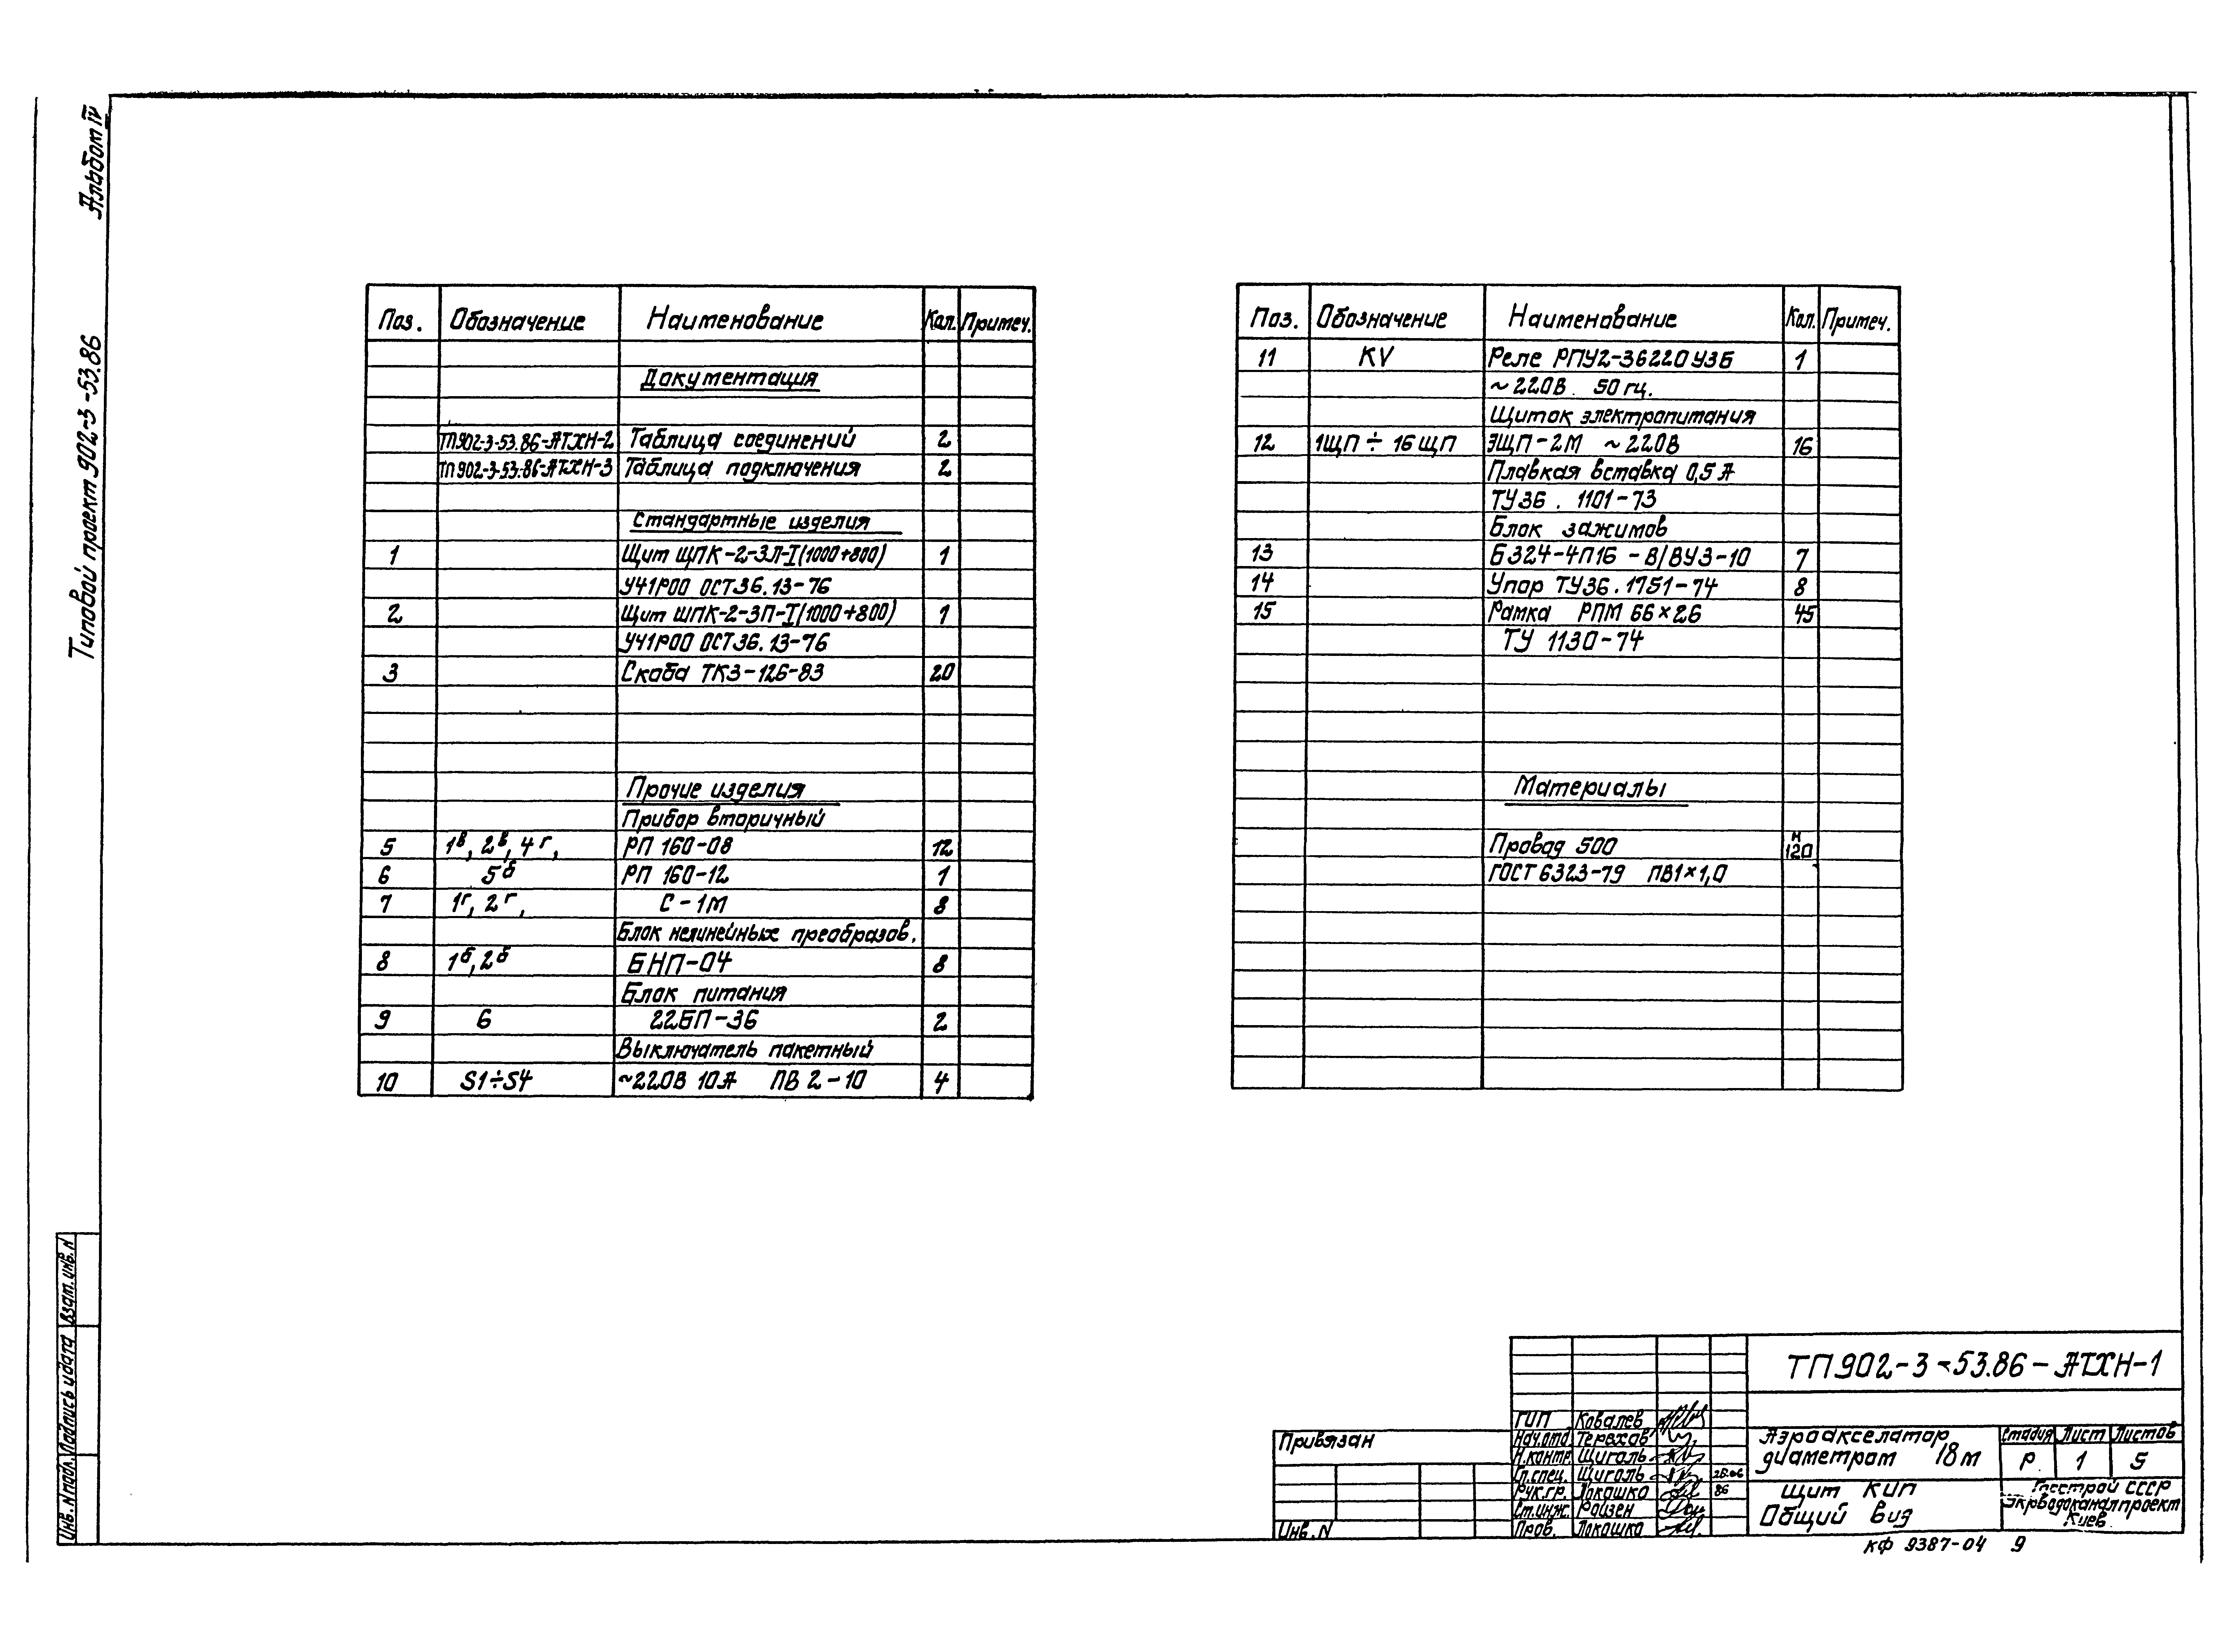 Альбом IV
Типовой проект 902-3-53.86
Поз. Обозначение Наименование Кол. Примеч.
Документация
ТП902-3-53.86-АТХН-2 Таблица соединений 2
ТП902-3-53.86-АТХН-3 Таблица подключения 2
Стандартные изделия
1 Щит ЩПК-2-ЗЛ-I(1000+800) 1
УЧ1Р00 ОСТ36.13-76
2 Щит ШПК-2-ЗП-I(1000+800) 1
УЧ1Р00 ОСТ36.13-76
3 Скоба ТК3-126-83 20
Прочие изделия
Прибор вторичный
5 1в, 2в, 4г, РП 160-08 12
6 5б РП 160-12 1
7 1г, 2г, С-1М 8
Блок нелинейных преобразов.
8 1б, 2б БНП-04 8
Блок питания
9 6 22БП-36 2
Выключатель пакетный
10 S1÷S4 ~220В 10А ПВ 2-10 4
Поз. Обозначение Наименование Кол. Примеч.
11 KV Реле РПУ2-36220У3Б 1
~220В. 50гц.
Щиток электропитания
12 1ЩП÷16ЩП ЭЩП-2М ~220В 16
Плавкая вставка 0,5А
ТУ36.1101-73
Блок зажимов
13 Б324-4П16-В/ВУ3-10 7
14 Упор ТУ36.1751-74 8
15 Рамка РПМ 66×26 45
ТУ 1130-74
Материалы
Провод 500 м 120
ГОСТ 6323-79 ПВ1×1,0
Инв.N подл. Подпись и дата Взам.инв.N
ТП902-3-53.86-АТХН-1
Привязан
Инв.N
ГИП Ковалев
Нач.отд Терехов
Н.контр. Щиголь
Гл.спец. Щиголь
Рук.гр. Локошко 86
Ст.инж. Райзен
Пров. Локошко
Аэроакселатор
диаметром 18м
Стадия Лист Листов
Р. 1 5
Щит КИП
Общий вид
Госстрой СССР
Укрводоканалпроект
Киев
КФ 9387-04 9